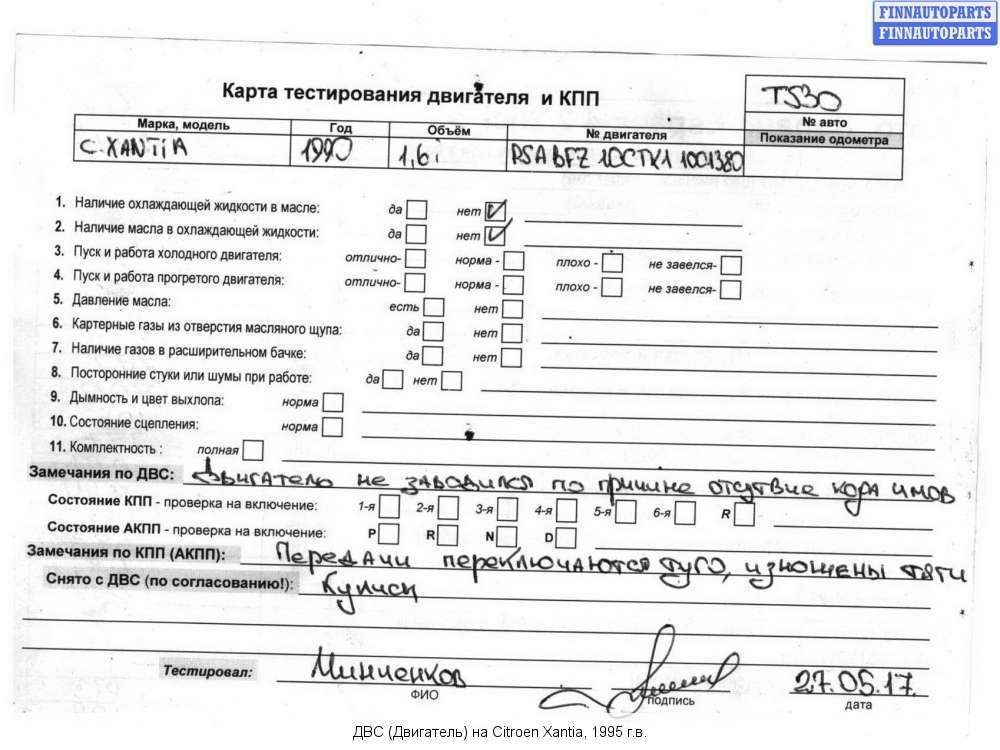 FINNAUTOPARTS
FINNAUTOPARTS
Карта тестирования двигателя и КПП
TS30
№ авто
Марка, модель Год Объём № двигателя Показание одометра
C. XANTiA 1990 1,6i PSA BFZ 10CTK1 1001380
1. Наличие охлаждающей жидкости в масле: да нет
2. Наличие масла в охлаждающей жидкости: да нет
3. Пуск и работа холодного двигателя: отлично- норма - плохо - не завелся-
4. Пуск и работа прогретого двигателя: отлично- норма - плохо - не завелся-
5. Давление масла: есть нет
6. Картерные газы из отверстия масляного щупа: да нет
7. Наличие газов в расширительном бачке: да нет
8. Посторонние стуки или шумы при работе: да нет
9. Дымность и цвет выхлопа: норма
10. Состояние сцепления: норма
11. Комплектность : полная
Замечания по ДВС: Двигатель не заводился по причине отсутствие кода имов
Состояние КПП - проверка на включение: 1-я 2-я 3-я 4-я 5-я 6-я R
Состояние АКПП - проверка на включение: P R N D
Замечания по КПП (АКПП): Передачи переключаются туго, изношены тяги
Снято с ДВС (по согласованию!): Кулисы
Тестировал: Минченков 27.05.17.
ФИО подпись дата
ДВС (Двигатель) на Citroen Xantia, 1995 г.в.